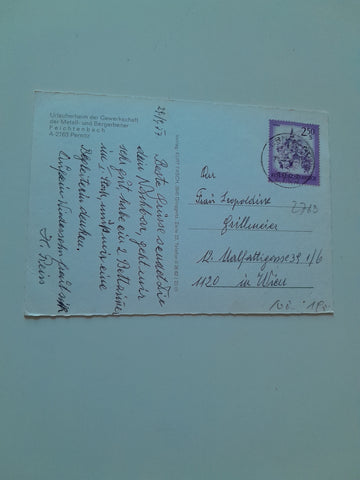 Urlauberheim der Gewerkschaft
der Metall- und Bergarbeiter
Feichtenbach
A-2763 Pernitz
Beste Grüsse sendet Die
dein Nachbar, geht mir
sehr gut, habe ein 2 Bettzimmer
im
Begleiterin danken.
Auf ein Wiedersehn freut sich
H.
2,50
An
Frau Leopoldine
Grillmeier
12. Malfattigasse 39 1/6
1120 in Wien
2763